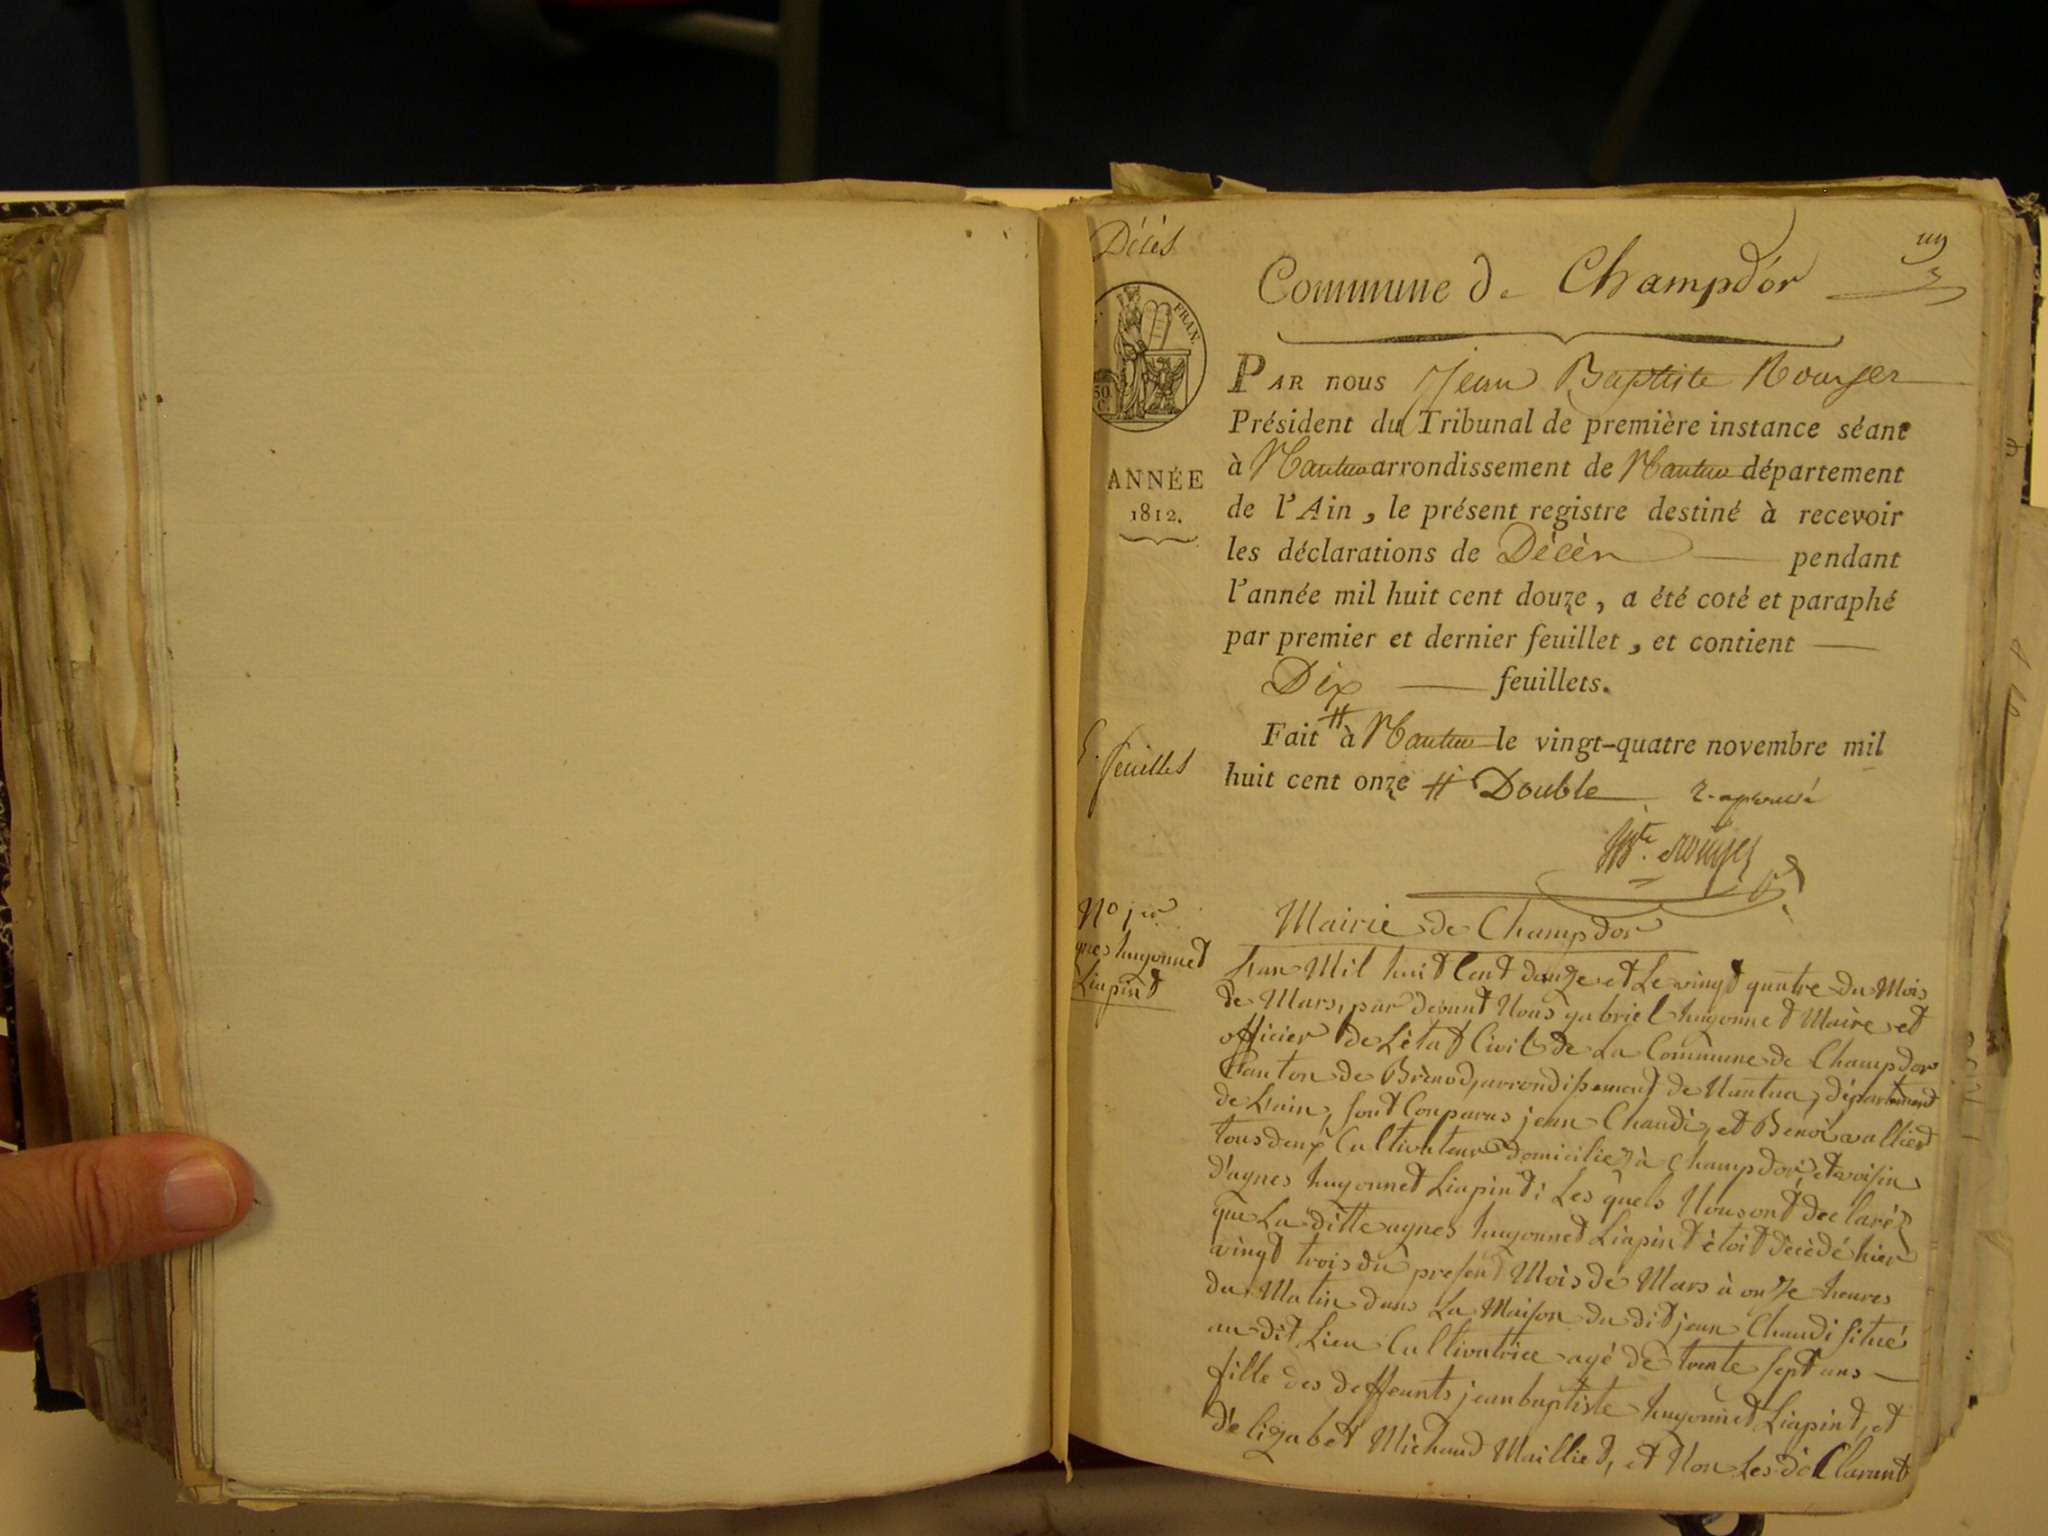 Décès
Commune de Champdor
FRAN.
50
C.
PAR nous Jean Baptiste Rouyer
Président du Tribunal de première instance séant
à Nantua arrondissement de Nantua département
ANNÉE
1812.
de l'Ain, le présent registre destiné à recevoir
les déclarations de Décès pendant
l'année mil huit cent douze, a été coté et paraphé
par premier et dernier feuillet, et contient
Dix feuillets.
feuilles
Fait à Nantua le vingt-quatre novembre mil
huit cent onze # Double
No 1er
hugonnet
Liapint
Mairie de Champdor
Lan Mil huit Cent douze et Le vingt quatre du Mois
de Mars, par devant Nous gabriel hugonnet Maire et
officier de Létat Civil de La Commune de Champdor
Canton de Brénod, arrondissement de Nantua, département
de Lain, sont Comparus jean Chaudi, et Benoi vallier
tous deux Cultivateurs domiciliez à Champdor, et voisin
d'agnes hugonnet Liapint; Les quels Nous ont declaréz
que La ditte agnes hugonnet Liapint étoit décédé hier
vingt trois du présent Mois de Mars à onze heures
du Matin dans La Maison du dit jean Chaudi situé
au dit Lieu Cultivatrice agé de trente sept ans
fille des deffeunts jean baptiste hugonnet Liapint, et
d'elizabet Michaud Mailliet, et Non Les déClarant